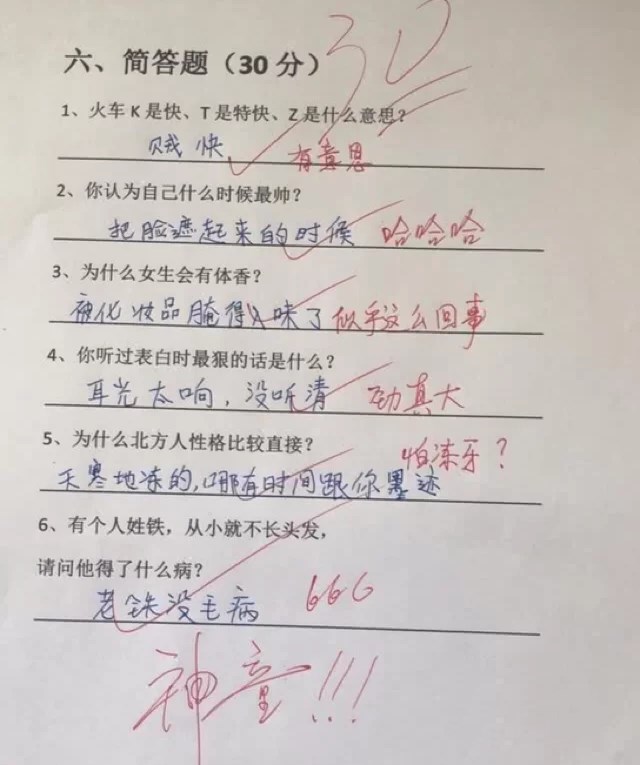 30
六、简答题（30 分）
1、火车 K 是快、T 是特快、Z 是什么意思？
贼快 有意思
2、你认为自己什么时候最帅？
把脸遮起来的时候 哈哈哈
3、为什么女生会有体香？
被化妆品腌得入味了 似乎这么回事
4、你听过表白时最狠的话是什么？
耳光太响，没听清 劲真大
5、为什么北方人性格比较直接？
怕冻牙？
天寒地冻的，哪有时间跟你墨迹
6、有个人姓铁，从小就不长头发，
请问他得了什么病？
老铁没毛病 666
神童!!!